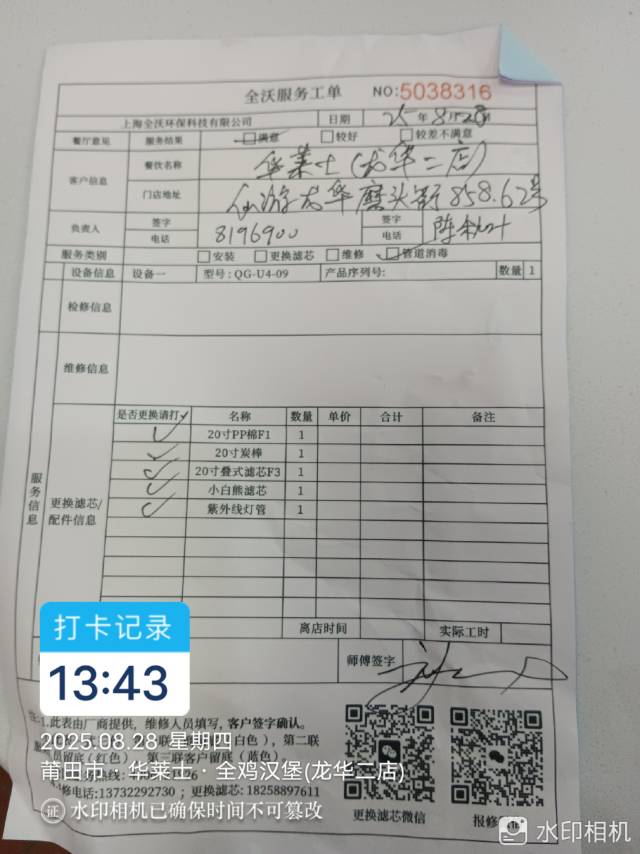 全沃服务工单 NO:5038316
上海全沃环保科技有限公司 日期 25年8月28日
餐厅意见 服务结果 □满意 □较好 □较差不满意
客户信息 餐饮名称 华莱士(龙华二店)
门店地址 仙游龙华磨头街858.62号
负责人 签字 电话 8196900 签字 电话 陈
服务类别 □安装 □更换滤芯 □维修 □管道消毒
设备信息 设备一 型号:QG-U4-09 产品序列号: 数量 1
检修信息
维修信息
服务信息
更换滤芯/配件信息
是否更换请打✓ 名称 数量 单价 合计 备注
✓ 20寸PP棉F1 1
✓ 20寸炭棒 1
✓ 20寸叠式滤芯F3 1
✓ 小白熊滤芯 1
✓ 紫外线灯管 1
离店时间 实际工时
师傅签字
打卡记录
13:43
注:1.此表由厂商提供,维修人员填写,客户签字确认。
白色),第二联
留底(红色)、第三联客户留底(蓝色)。
2025.08.28 星期四
莆田市·华莱士·全鸡汉堡(龙华二店)
修电话:13732292730;更换滤芯:18258897611
证 水印相机已确保时间不可篡改
更换滤芯微信 报修
水印相机